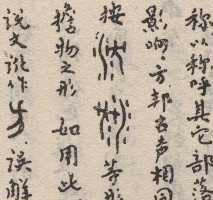 称以称呼其它部落
影响方邦古声相同
按 等形
擔物之形 如用此
说文讹作方误解